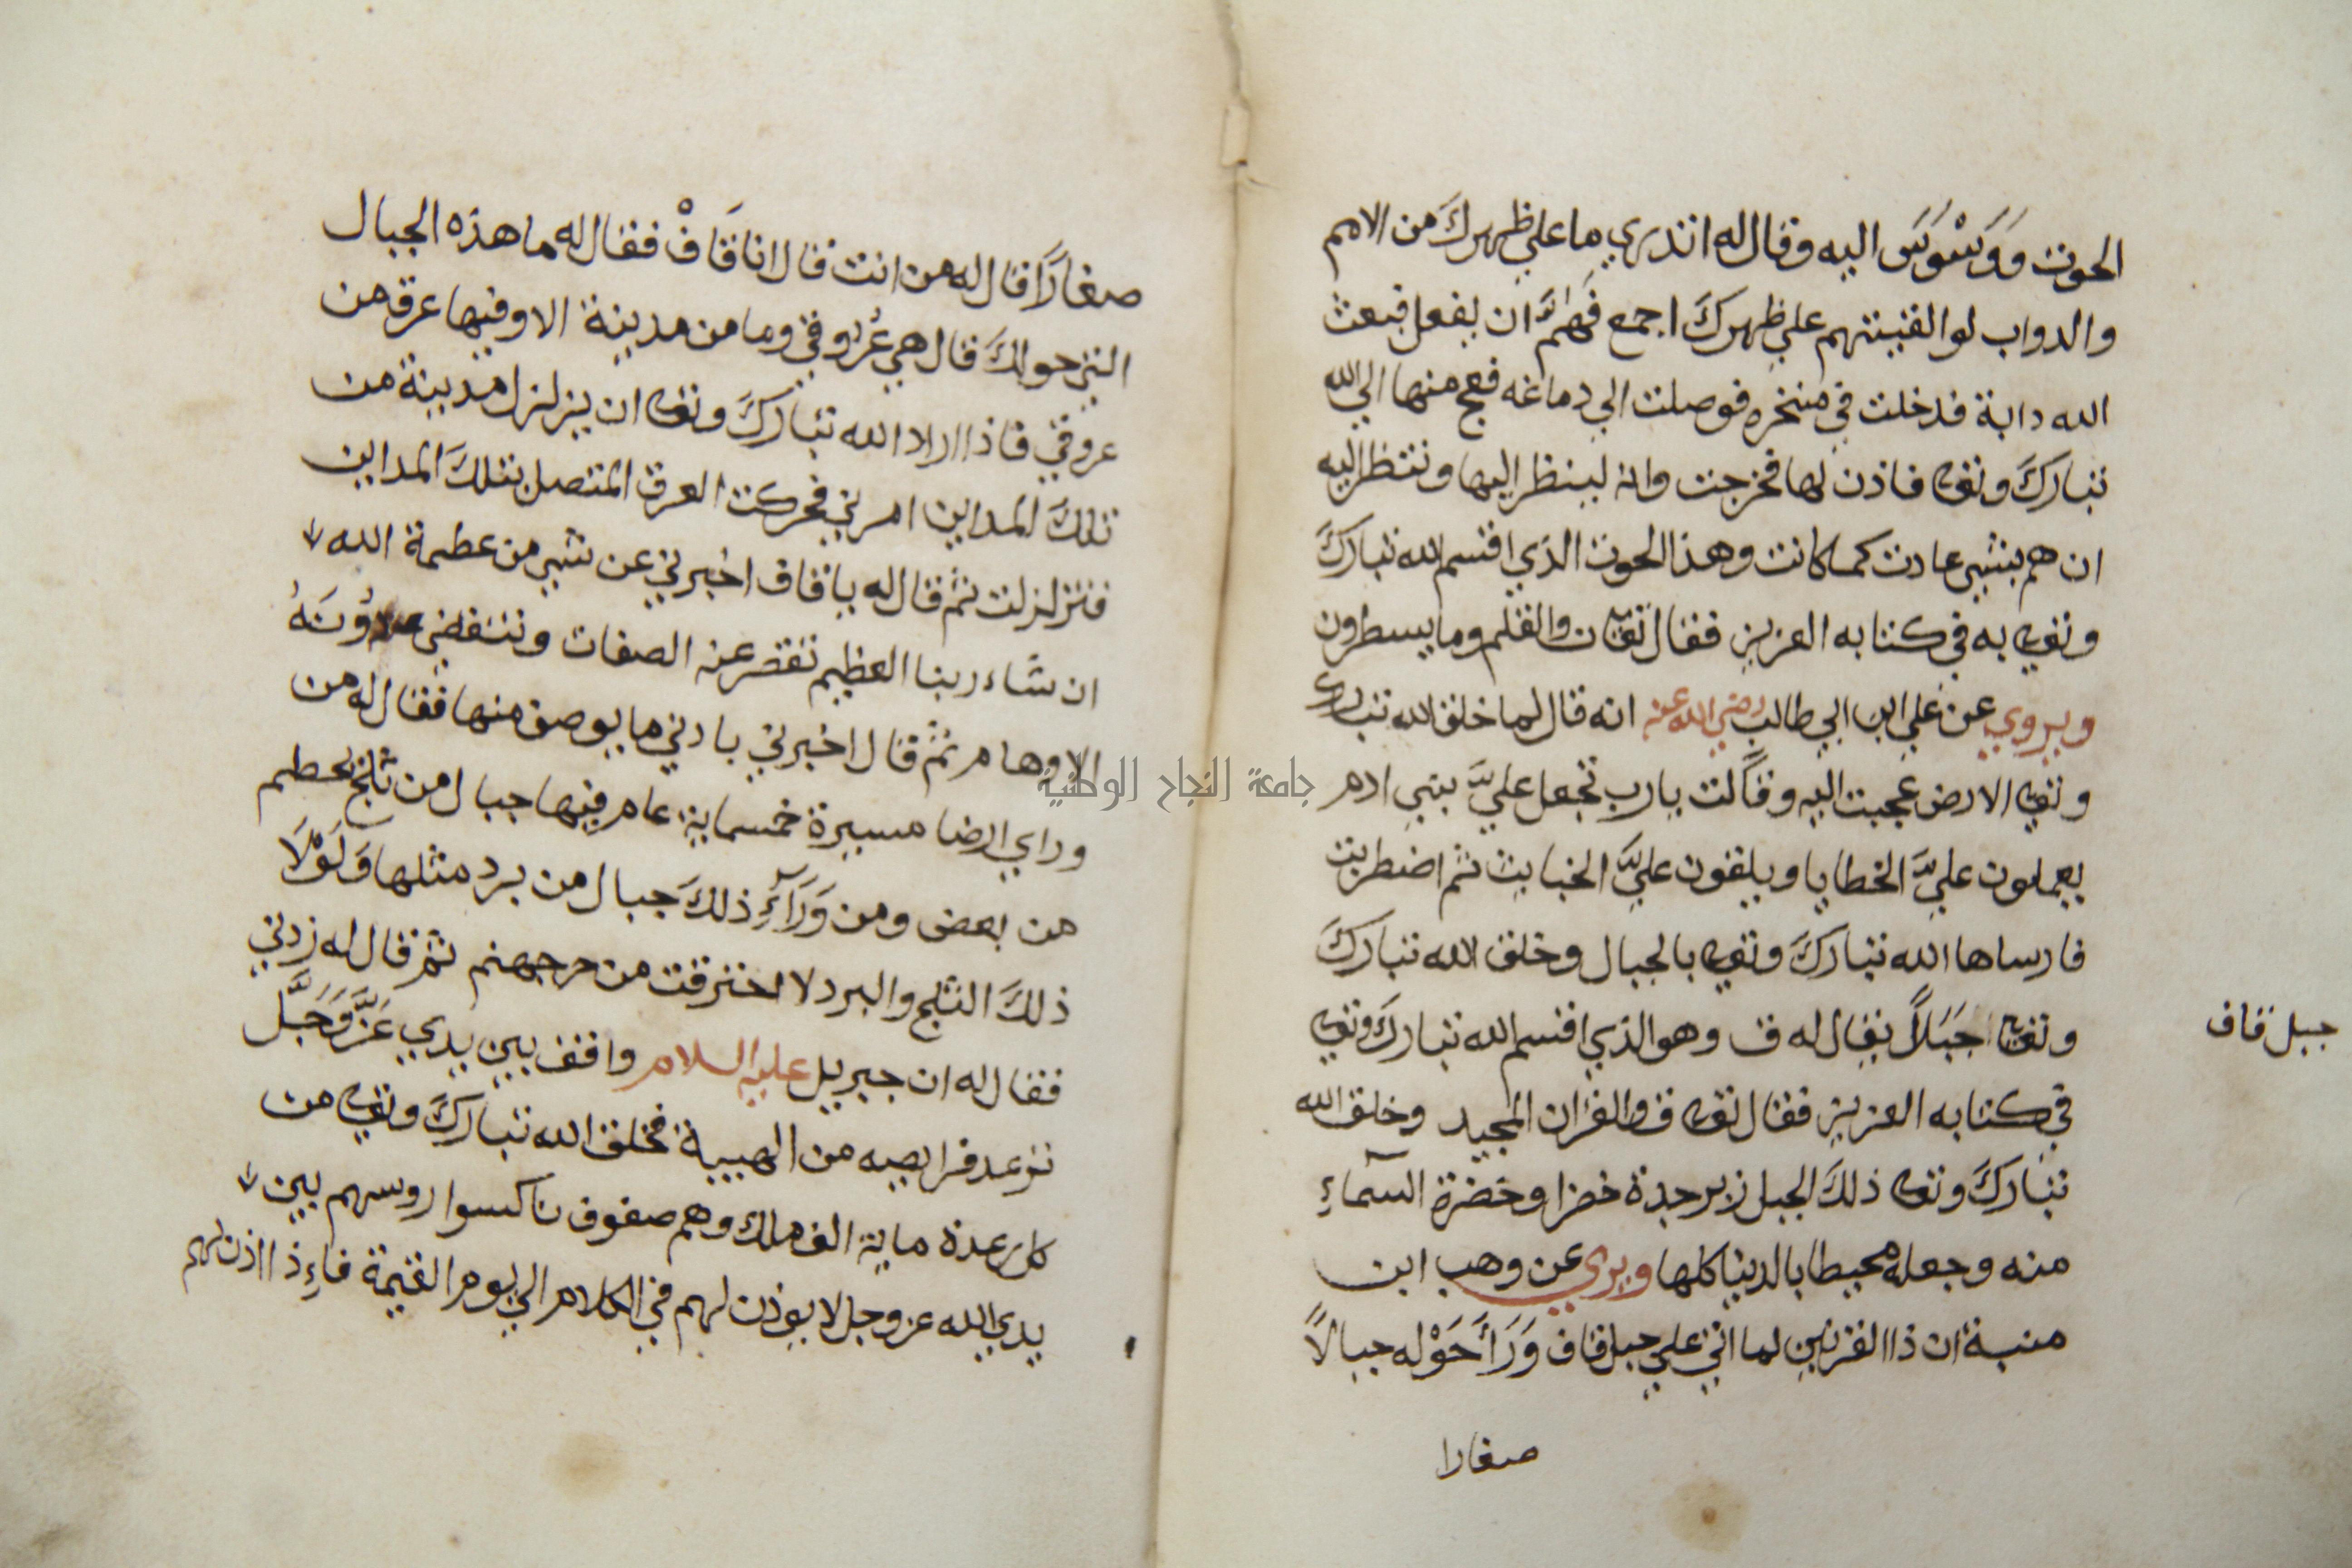 الحوت وَوَسْوَسَ اليه وقال له اتدري ما علي ظهرك من الامم
والدواب لو القيتهم علي ظهرك اجمع فَهَمَّ ان يفعل فبعث
الله دابة فدخلت في منخره فوصلت الي دماغه فعج منها الي الله
تبارك وتعالى فاذن لها فخرجت وانه لينظر اليها وتنظر اليه
ان هم بشي عادت كما كانت وهذا الحوت الذي اقسم الله تبارك
وتعالى به في كتابه العزيز فقال تعالى ن والقلم وما يسطرون
ويروي عن علي ابن ابي طالب رضي الله عنه انه قال لما خلق الله تبارك
وتعالى الارض عجت اليه وقالت يا رب تجعل عليَّ بني ادم
يعملون عليَّ الخطايا ويلقون عليَّ الخبايث ثم اضطربت
فارساها الله تبارك وتعالى بالجبال وخلق الله تبارك
وتعالى جَبَلاً يقال له ق وهو الذي اقسم الله تبارك وتعالى
جبل قاف
في كتابه العزيز فقال تعالى ق والقران المجيد وخلق الله
تبارك وتعالى ذلك الجبل زبرجدة خضرا وخضرة السمآءِ
منه وجعله محيطا بالدنيا كلها ويري عن وهب ابن
منبة ان ذا القرنين لما اتي علي جبل قاف وَرَأَ حَوْله جبالاً
صغارا
صغارًا قال له من انت قال انا قَافْ فقال له ما هذه الجبال
التي حولك قال هي عُرُوقي وما من مدينة الا وفيها عرق من
عروقي فاذا اراد الله تبارك وتعالى ان يزلزل مدينة من
تلك المداين امرني فحركت العرق المتصل بتلك المداين
فتزلزلت ثم قال له يا قاف اخبرني عن شي من عظمة الله
ان شاء ربنا العظيم تقصر عنه الصفات وتنقضي دُونَهُ
الاوهام ثم قال اخبرني بادني ما يوصف منها فقال له من
وراي ارضا مسيرة خمسماية عام فيها جبال من ثلج يحطم
من بعض ومن وَرَآءِ ذلك جبال من برد مثلها وَلَوْلَا
ذلك الثلج والبرد لاحترقت من حر جهنم ثم قال له زدني
فقال له ان جبريل عليه السلام واقف بين يدي عَزَّ وَجَلَّ
ترعد فرايصه من الهيبة فخلق الله تبارك وتعالى من
كل رعدة ماية الف ملك وهم صفوف ناكسوا روسهم بين
يدي الله عز وجل لا يوذن لهم في الكلام الي يوم القيمة فاءِذا اذن لهم
جامعة النجاح الوطنية